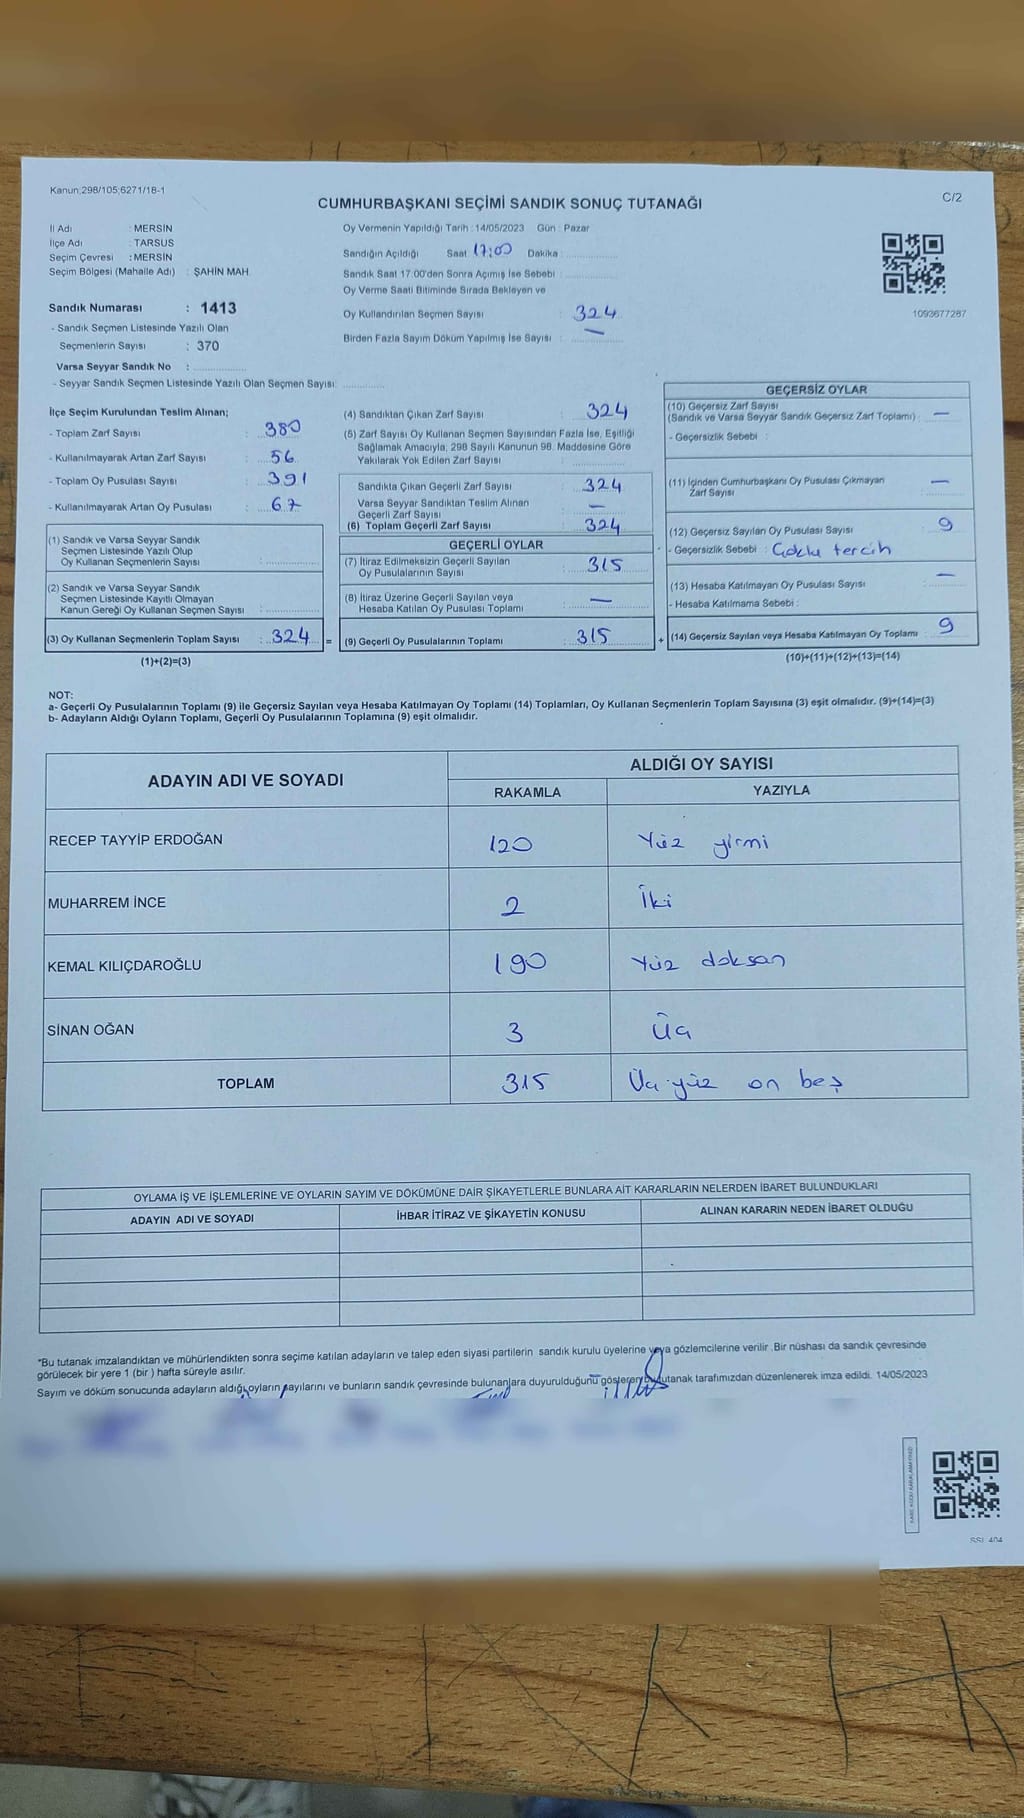 Kanun;298/105;6271/18-1
C/2
CUMHURBAŞKANI SEÇİMİ SANDIK SONUÇ TUTANAĞI
İl Adı : MERSİN
İlçe Adı : TARSUS
Seçim Çevresi : MERSİN
Seçim Bölgesi (Mahalle Adı) : ŞAHİN MAH.
Oy Vermenin Yapıldığı Tarih : 14/05/2023 Gün : Pazar
Sandığın Açıldığı Saat 17:00 Dakika :
Sandık Saat 17.00'den Sonra Açımış İse Sebebi :
Oy Verme Saati Bitiminde Sırada Bekleyen ve
Oy Kullandırılan Seçmen Sayısı : 324
Birden Fazla Sayım Döküm Yapılmış İse Sayısı : —
1093677287
Sandık Numarası : 1413
- Sandık Seçmen Listesinde Yazılı Olan
Seçmenlerin Sayısı : 370
Varsa Seyyar Sandık No :
- Seyyar Sandık Seçmen Listesinde Yazılı Olan Seçmen Sayısı:
İlçe Seçim Kurulundan Teslim Alınan;
- Toplam Zarf Sayısı : 380
- Kullanılmayarak Artan Zarf Sayısı : 56
- Toplam Oy Pusulası Sayısı : 391
- Kullanılmayarak Artan Oy Pusulası : 67
(1) Sandık ve Varsa Seyyar Sandık
Seçmen Listesinde Yazılı Olup
Oy Kullanan Seçmenlerin Sayısı :
(2) Sandık ve Varsa Seyyar Sandık
Seçmen Listesinde Kayıtlı Olmayan
Kanun Gereği Oy Kullanan Seçmen Sayısı :
(3) Oy Kullanan Seçmenlerin Toplam Sayısı : 324 =
(1)+(2)=(3)
(4) Sandıktan Çıkan Zarf Sayısı : 324
(5) Zarf Sayısı Oy Kullanan Seçmen Sayısından Fazla İse, Eşitliği
Sağlamak Amacıyla; 298 Sayılı Kanunun 98. Maddesine Göre
Yakılarak Yok Edilen Zarf Sayısı :
Sandıkta Çıkan Geçerli Zarf Sayısı : 324
Varsa Seyyar Sandıktan Teslim Alınan
Geçerli Zarf Sayısı : —
(6) Toplam Geçerli Zarf Sayısı : 324
GEÇERLİ OYLAR
(7) İtiraz Edilmeksizin Geçerli Sayılan
Oy Pusulalarının Sayısı : 315
(8) İtiraz Üzerine Geçerli Sayılan veya
Hesaba Katılan Oy Pusulası Toplamı : —
(9) Geçerli Oy Pusulalarının Toplamı : 315 +
GEÇERSİZ OYLAR
(10) Geçersiz Zarf Sayısı
(Sandık ve Varsa Seyyar Sandık Geçersiz Zarf Toplamı) : —
- Geçersizlik Sebebi :
(11) İçinden Cumhurbaşkanı Oy Pusulası Çıkmayan
Zarf Sayısı : —
(12) Geçersiz Sayılan Oy Pusulası Sayısı : 9
- Geçersizlik Sebebi : Çoklu tercih
(13) Hesaba Katılmayan Oy Pusulası Sayısı : —
- Hesaba Katılmama Sebebi :
(14) Geçersiz Sayılan veya Hesaba Katılmayan Oy Toplamı : 9
(10)+(11)+(12)+(13)=(14)
NOT:
a- Geçerli Oy Pusulalarının Toplamı (9) ile Geçersiz Sayılan veya Hesaba Katılmayan Oy Toplamı (14) Toplamları, Oy Kullanan Seçmenlerin Toplam Sayısına (3) eşit olmalıdır. (9)+(14)=(3)
b- Adayların Aldığı Oyların Toplamı, Geçerli Oy Pusulalarının Toplamına (9) eşit olmalıdır.
ADAYIN ADI VE SOYADI
ALDIĞI OY SAYISI
RAKAMLA YAZIYLA
RECEP TAYYİP ERDOĞAN 120 Yüz yirmi
MUHARREM İNCE 2 İki
KEMAL KILIÇDAROĞLU 190 Yüz doksan
SİNAN OĞAN 3 Üç
TOPLAM 315 Üç yüz on beş
OYLAMA İŞ VE İŞLEMLERİNE VE OYLARIN SAYIM VE DÖKÜMÜNE DAİR ŞİKAYETLERLE BUNLARA AİT KARARLARIN NELERDEN İBARET BULUNDUKLARI
ADAYIN ADI VE SOYADI İHBAR İTİRAZ VE ŞİKAYETİN KONUSU ALINAN KARARIN NEDEN İBARET OLDUĞU
*Bu tutanak imzalandıktan ve mühürlendikten sonra seçime katılan adayların ve talep eden siyasi partilerin sandık kurulu üyelerine veya gözlemcilerine verilir .Bir nüshası da sandık çevresinde
görülecek bir yere 1 (bir ) hafta süreyle asılır.
Sayım ve döküm sonucunda adayların aldığı oyların sayılarını ve bunların sandık çevresinde bulunanlara duyurulduğunu gösteren bu tutanak tarafımızdan düzenlenerek imza edildi. 14/05/2023
SSI: 404